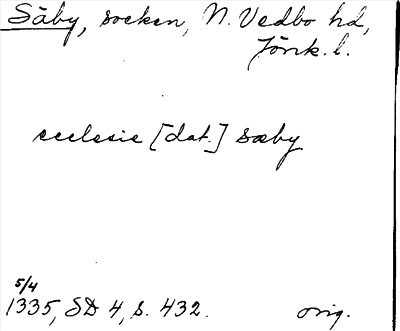 Säby, socken, N. Vedbo hd,
Jönk. l.
ecclesie [dat.] sæby
5/4
1335, SD 4, s. 432. orig.